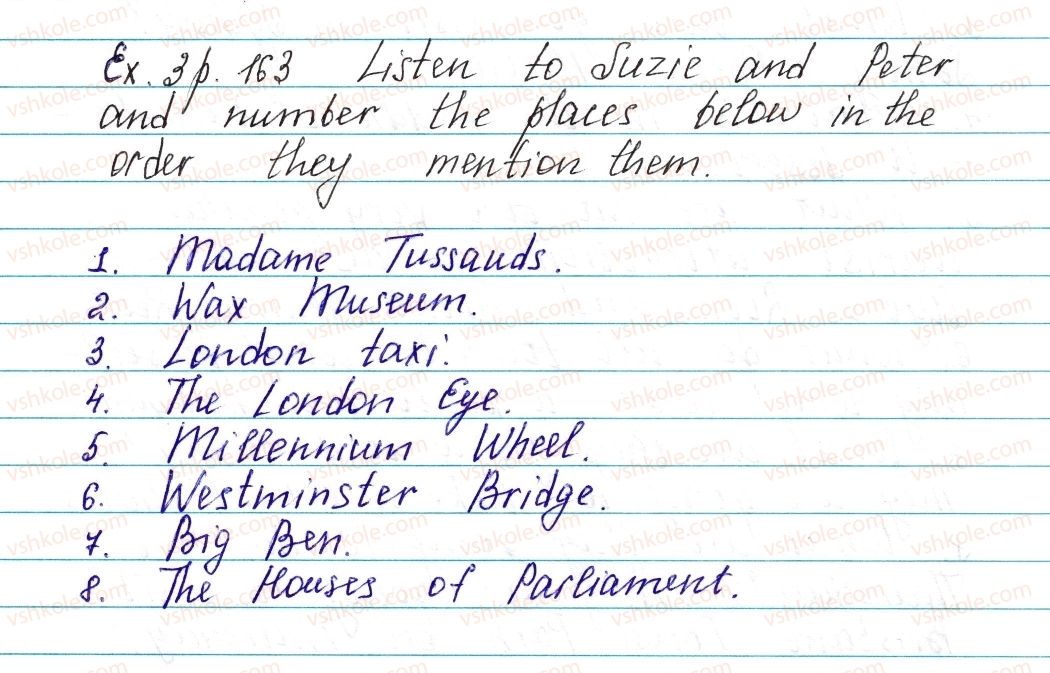 Ex. 3 p. 163 Listen to Suzie and Peter
and number the places below in the
order they mention them.
1. Madame Tussauds.
2. Wax Museum.
3. London taxi.
4. The London Eye.
5. Millennium Wheel.
6. Westminster Bridge.
7. Big Ben.
8. The Houses of Parliament.